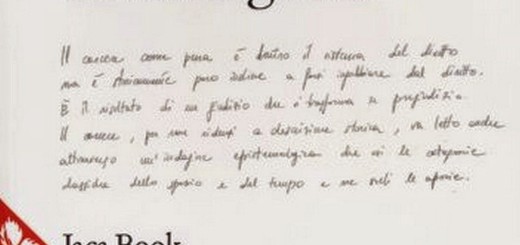 Il carcere come pena è dentro il sistema del diritto
ma è storicamente poco incline a farsi inglobare dal diritto.
È il risultato di un giudizio che si trasforma in pregiudizio.
Il carcere, per non ridursi a descrizione storica, va letto anche
attraverso un'indagine epistemologica che usi le categorie
classiche dello spazio e del tempo e ne sveli le aporie.
Jaca Book